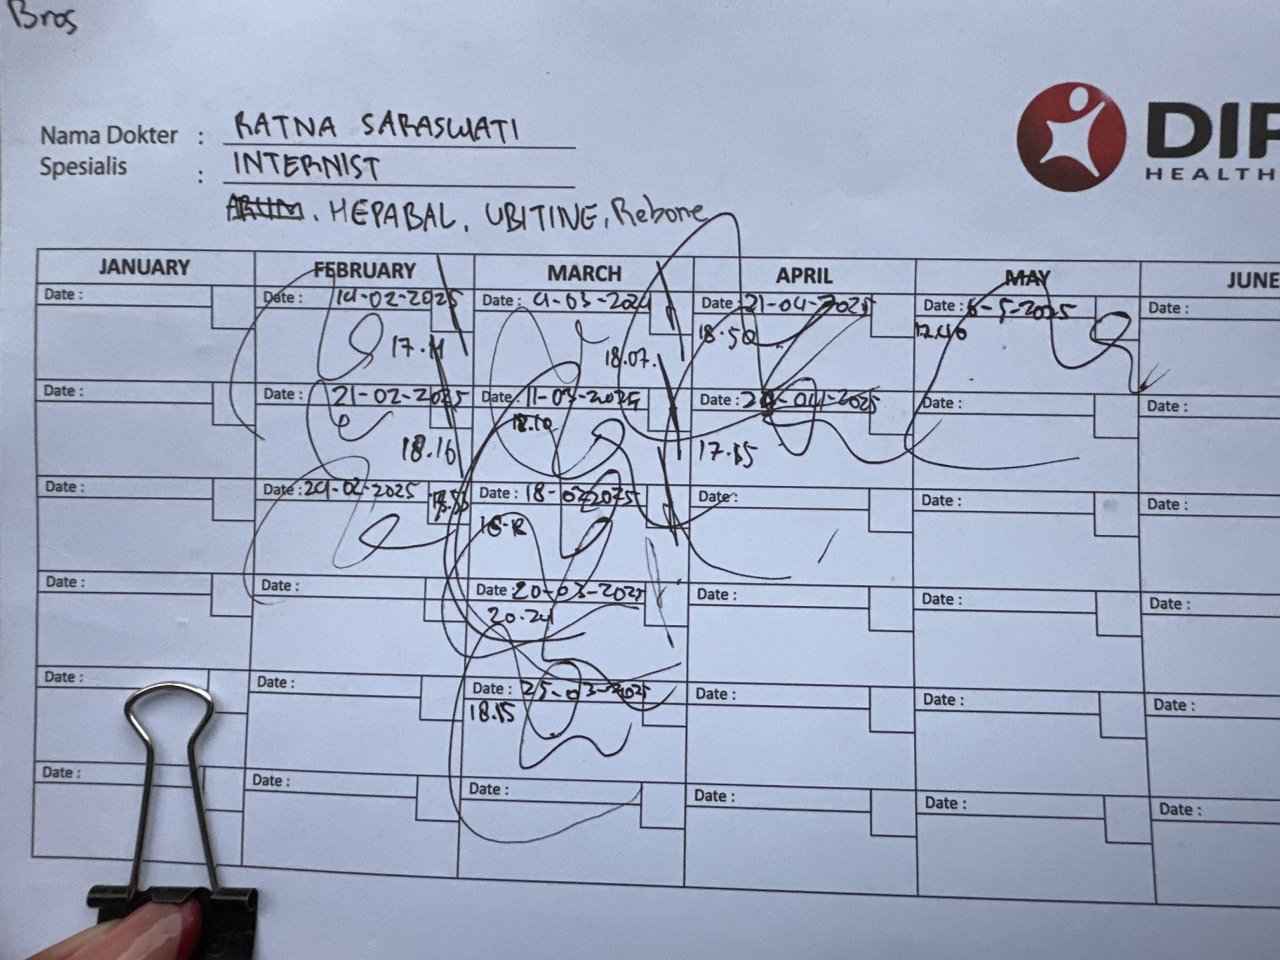 Bros
Nama Dokter : RATNA SARASWATI
Spesialis : INTERNIST
HEPABAL, UBITINE, Rebone
DIP
HEALTH
JANUARY FEBRUARY MARCH APRIL MAY JUNE
Date : Date : 14-02-2025 Date : 4-03-202 Date : 21-04-2025 Date : 6-5-2025 Date :
17.11 18.07. 18.50 17.40
Date : Date : 21-02-2025 Date : 11-03-2025 Date : 04-2025 Date : Date :
18.16 18.10 17.55
Date : Date : 24-02-2025 Date : 18-03-2025 Date : Date : Date :
Date : Date : Date : 20-03-2025 Date : Date : Date :
20.24
Date : Date : Date : 25-03-2025 Date : Date : Date :
18.15
Date : Date : Date : Date : Date : Date :